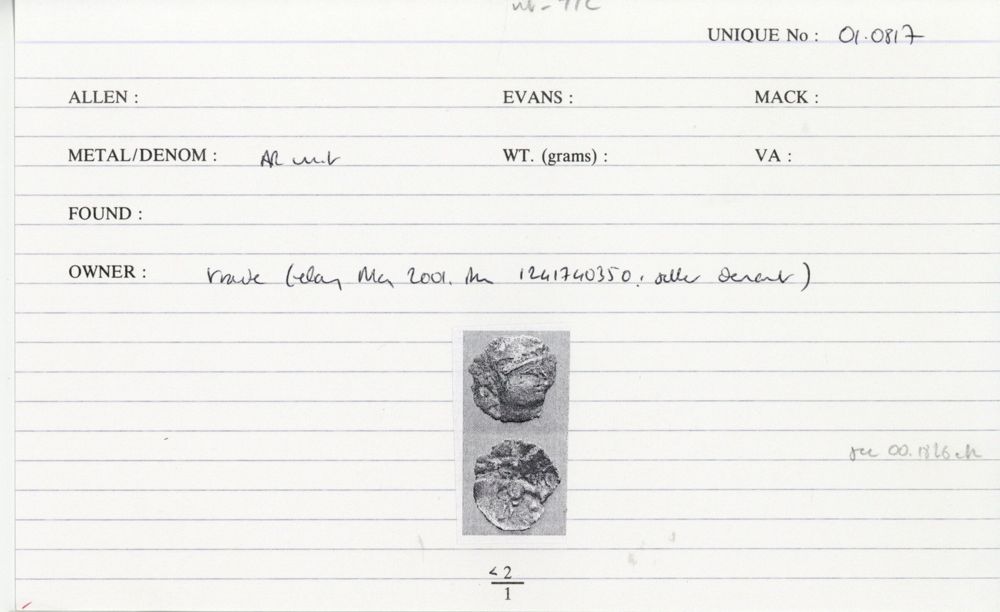 UNIQUE No : 01.0817
ALLEN :
EVANS :
MACK :
METAL/DENOM : AR unit
WT. (grams) :
VA :
FOUND :
OWNER : trade (ebay May 2001. 1241740350; seller )
see 00.1826
<2
1